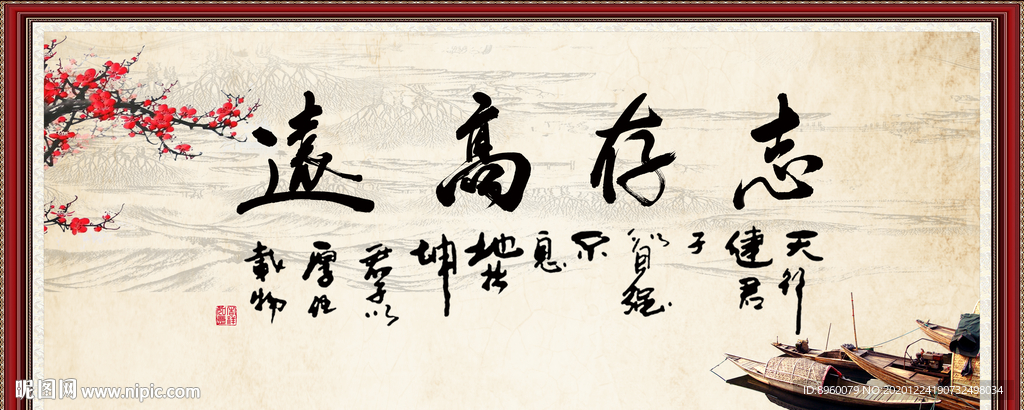 志存高遠
天行健君子以自强不息地势坤君子以厚德載物
昵图网 www.nipic.com
ID:8950079 NO:20201224190732498034